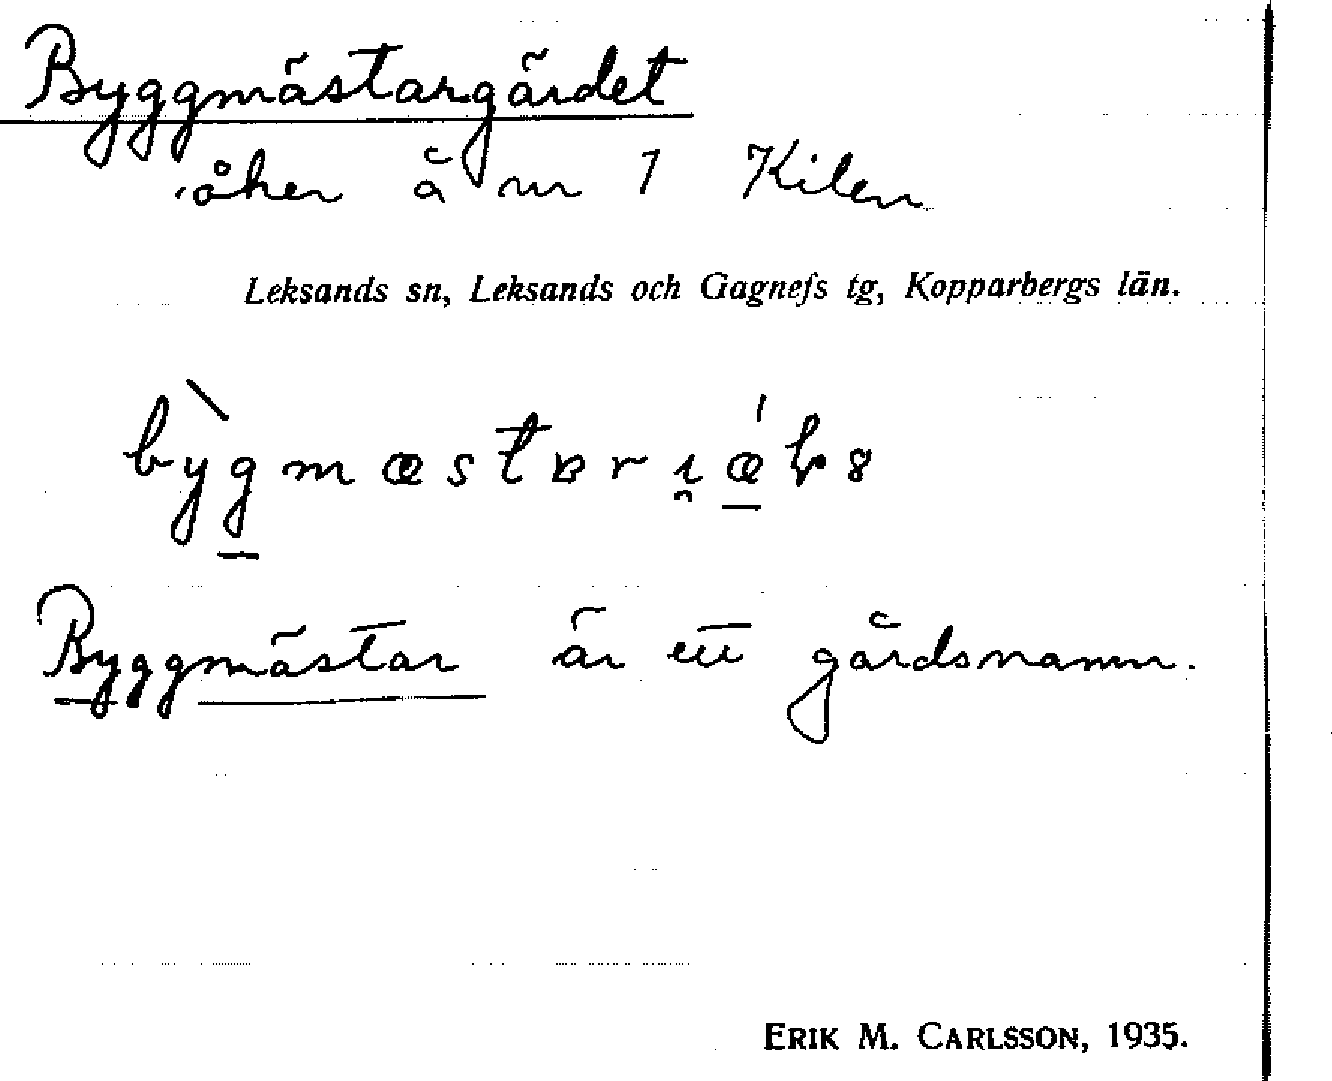 Byggmästargärdet
åker å nr 1 Kilen
Leksands sn, Leksands och Gagnefs tg, Kopparbergs län.
Byggmästar är ett gårdsnamn.
ERIK M. CARLSSON, 1935.